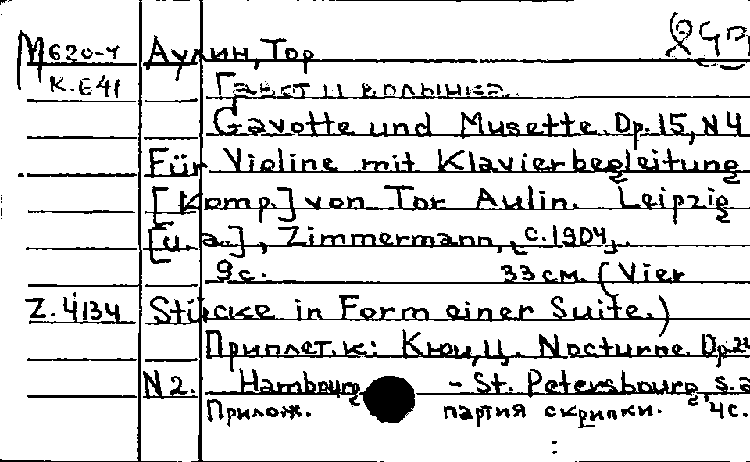 М620-4 Аулин, Тор
К.Е41 Гавот и волынка.
Gavotte und Musette. Op. 15, N 4
Für Violine mit Klavierbegleitung
[Komp.] von Tor Aulin. Leipzig
[u. a.], Zimmermann, с. 1904.
9 с. 33 см. (Vier
Z. 4134 Stücke in Form einer Suite.)
Приплет. к: Кюи, Ц. Nocturne. Op. 24
N 2. Hambourg - St. Petersbourg, s. a
Прилож. партия скрипки. 4 с.